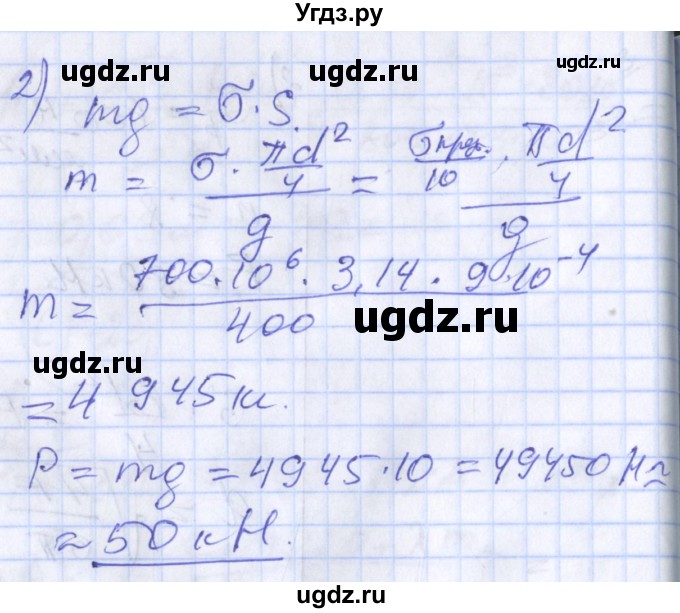 Угдз.ру
ugdz.ru ugdz.ru
2) mg = σ·S.
m = (σ · πd²/4)/g = (σпрз./10 · πd²/4)/g
m = (700·10⁶ · 3,14 · 9·10⁻⁴)/400
ugdz.ru
ugdz.ru
= 4 945 кг.
P = mg = 4945·10 = 49450 Н ≈
≈ 50 кН.
ugdz.ru ugdz.ru
ugdz.ru